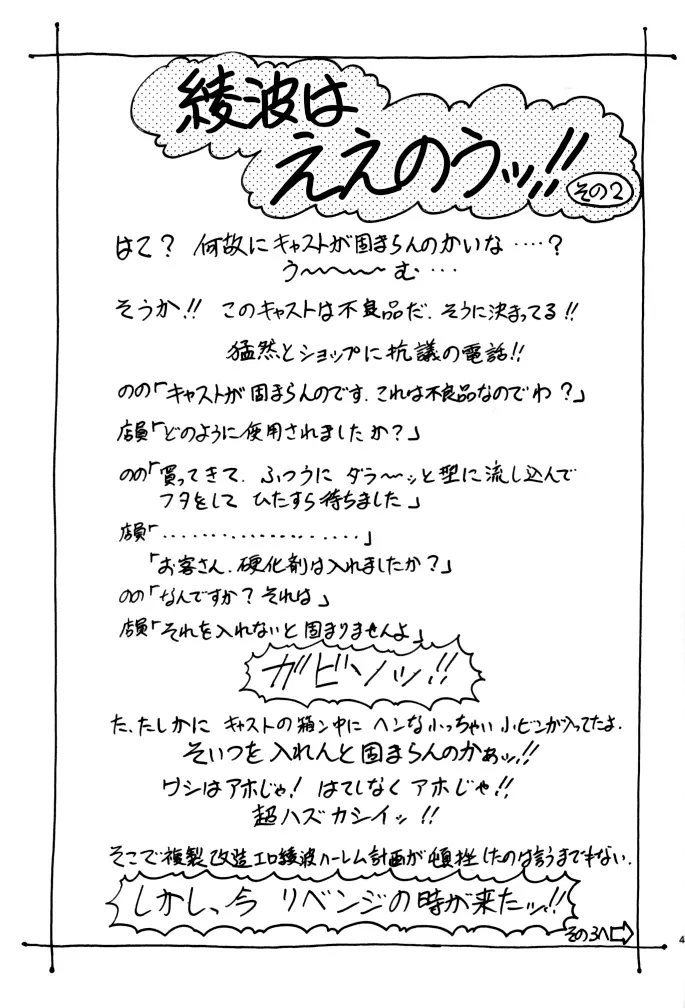 綾波は
ええのうッ!!
その2
はて? 何故にキャストが固まらんのかいな‥‥?
う〜〜〜〜む‥‥
そうか!! このキャストは不良品だ.そうに決まってる!!
猛然とショップに抗議の電話!!
のの「キャストが固まらんのです.これは不良品なのでわ?」
店員「どのように使用されましたか?」
のの「買ってきて.ふつうに ダラ〜ッと型に流し込んで
フタをして ひたすら待ちました」
店員「‥‥‥‥‥‥‥‥‥‥」
「お客さん.硬化剤は入れましたか?」
のの「なんですか? それは」
店員「それを入れないと固まりませんよ」
ガビソッ!!
た、たしかに キャストの箱ン中に ヘンな小っちゃい小ビンが入ってたよ.
そいつを入れんと固まらんのかぁッ!!
ワシはアホじゃ! はてしなく アホじゃ!!
超ハズカシイッ!!
そこで複製改造エロ綾波ハーレム計画が頓挫したのは言うまでもない.
しかしっ、今 リベンジの時が来たッ!!
その3へ
4